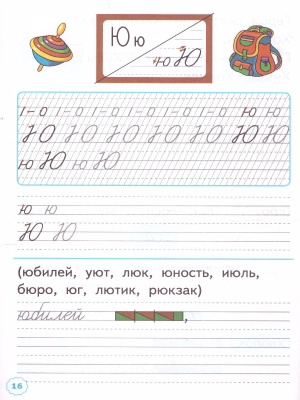 Ю ю ю Ю
I - о I - о I - о I - о I - о I - о ю ю
Ю Ю Ю Ю Ю Ю Ю Ю
ю Ю ю Ю
ю ю
Ю Ю
(юбилей, уют, люк, юность, июль,
бюро, юг, лютик, рюкзак)
юбилей ,
16